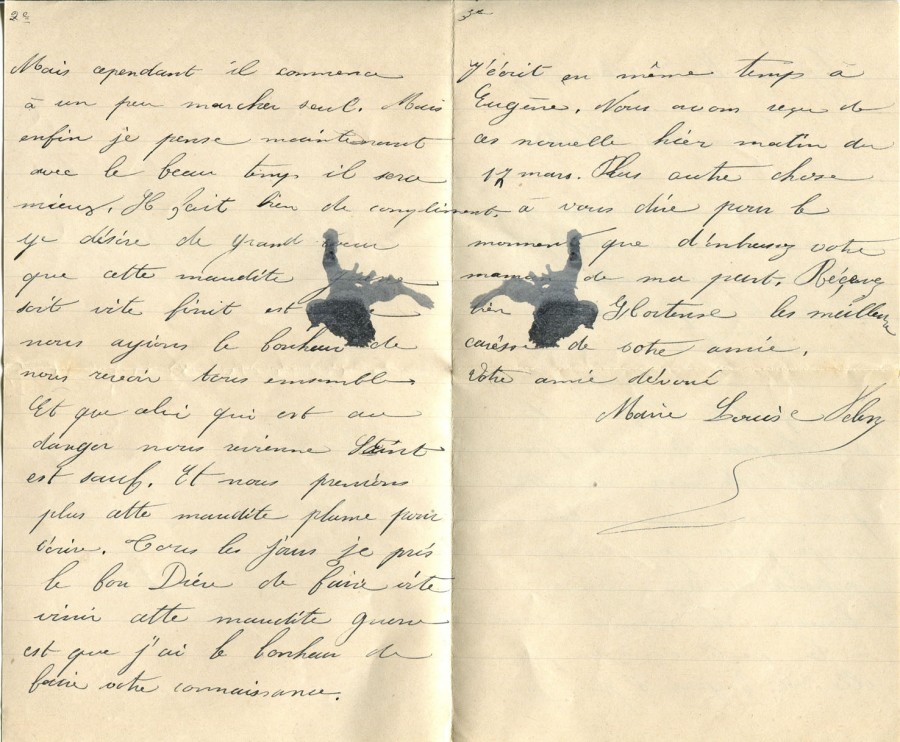 2e
Mais cependant il commence
à un peu marcher seul. Mais
enfin je pense maintenant
avec le beau temps il sera
mieux. Il fait bien de compliment.
ye désire de grand coeur
que cette maudite
soit vite finit est
nous ayions le bonheur de
nous revoir tous ensembles
Et que celui qui est au
danger nous revienne Saint
est sauf. Et nous prenions
plus cette maudite plume pour
écrire. Tous les jours je pris
le bon Diéu de faire vite
venir cette maudite guerre
est que j'ai le bonheur de
faire votre connaissance.
3e
J'écrit en même temps à
Eugène. Nous avons reçu de
ces nouvelle hier matin du
17 mars. Plus autre chose
à vous dire pour le
moment que d'enbrassez votre
maman de ma part. Réçevez
bien Hortense les meilleurs
caresses de votre amie.
Votre amie dévoué
Marie Louise